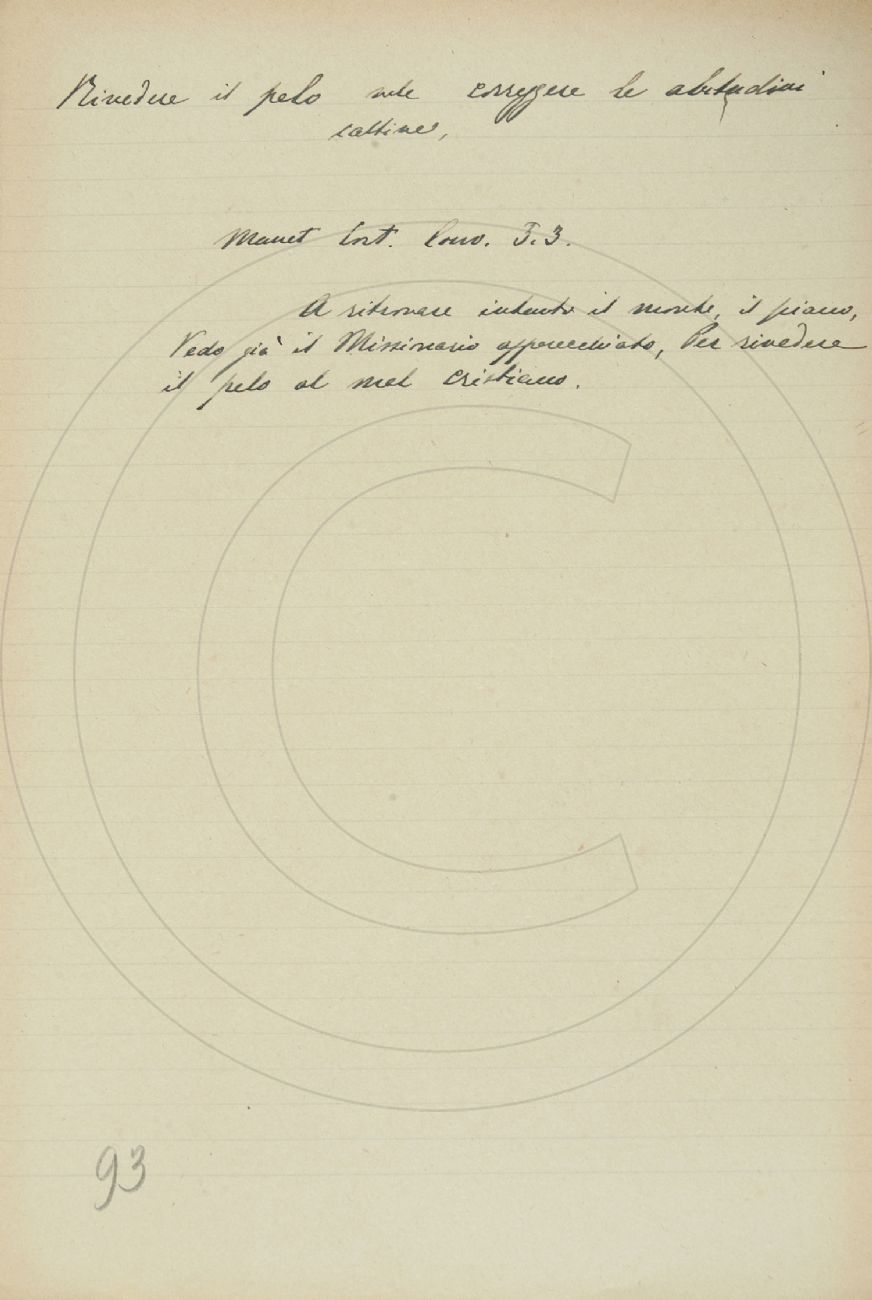 Rivedere il pelo vale correggere le abitudini
cattive,
Manet Cost. Conv. T. 3.
A ritrovare intento il monte, il piano,
Vedo già il Missionario apparecchiato, Per rivedere
il pelo al mal cristiano.
93